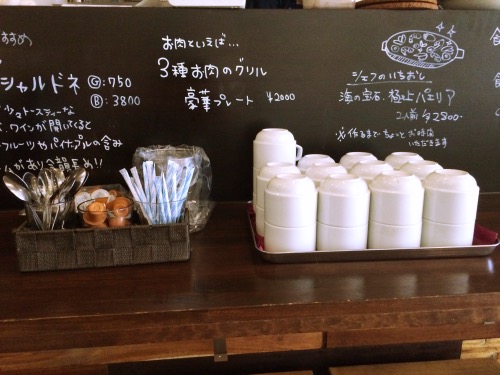 すすめ
シャルドネ Ⓖ:750
Ⓑ:3800
トースティーな
ワインが開いてくると
フルーツやパイナップルの含み
お肉といえば…
3種お肉のグリル
豪華プレート ¥2000
シェフのいちおし
海の宝石、極上パエリア
2人前 ¥2800-
※作るまで ちょっとお時間
いただきます